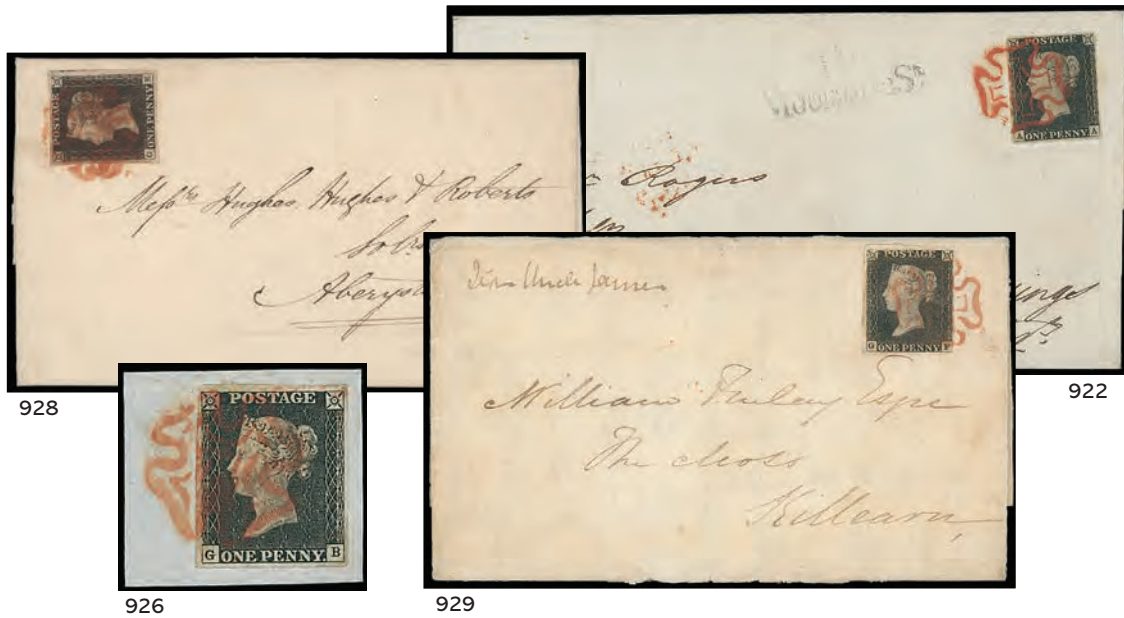 POSTAGE
ONE PENNY
G
Messrs Hughes Hughes & Roberts
Solrs
Aberyst
928
POSTAGE
A ONE PENNY A
St
Rogers
922
POSTAGE
G ONE PENNY. B
926
POSTAGE
G ONE PENNY F
William Finlay Esqre
The Moss
Killearn
929